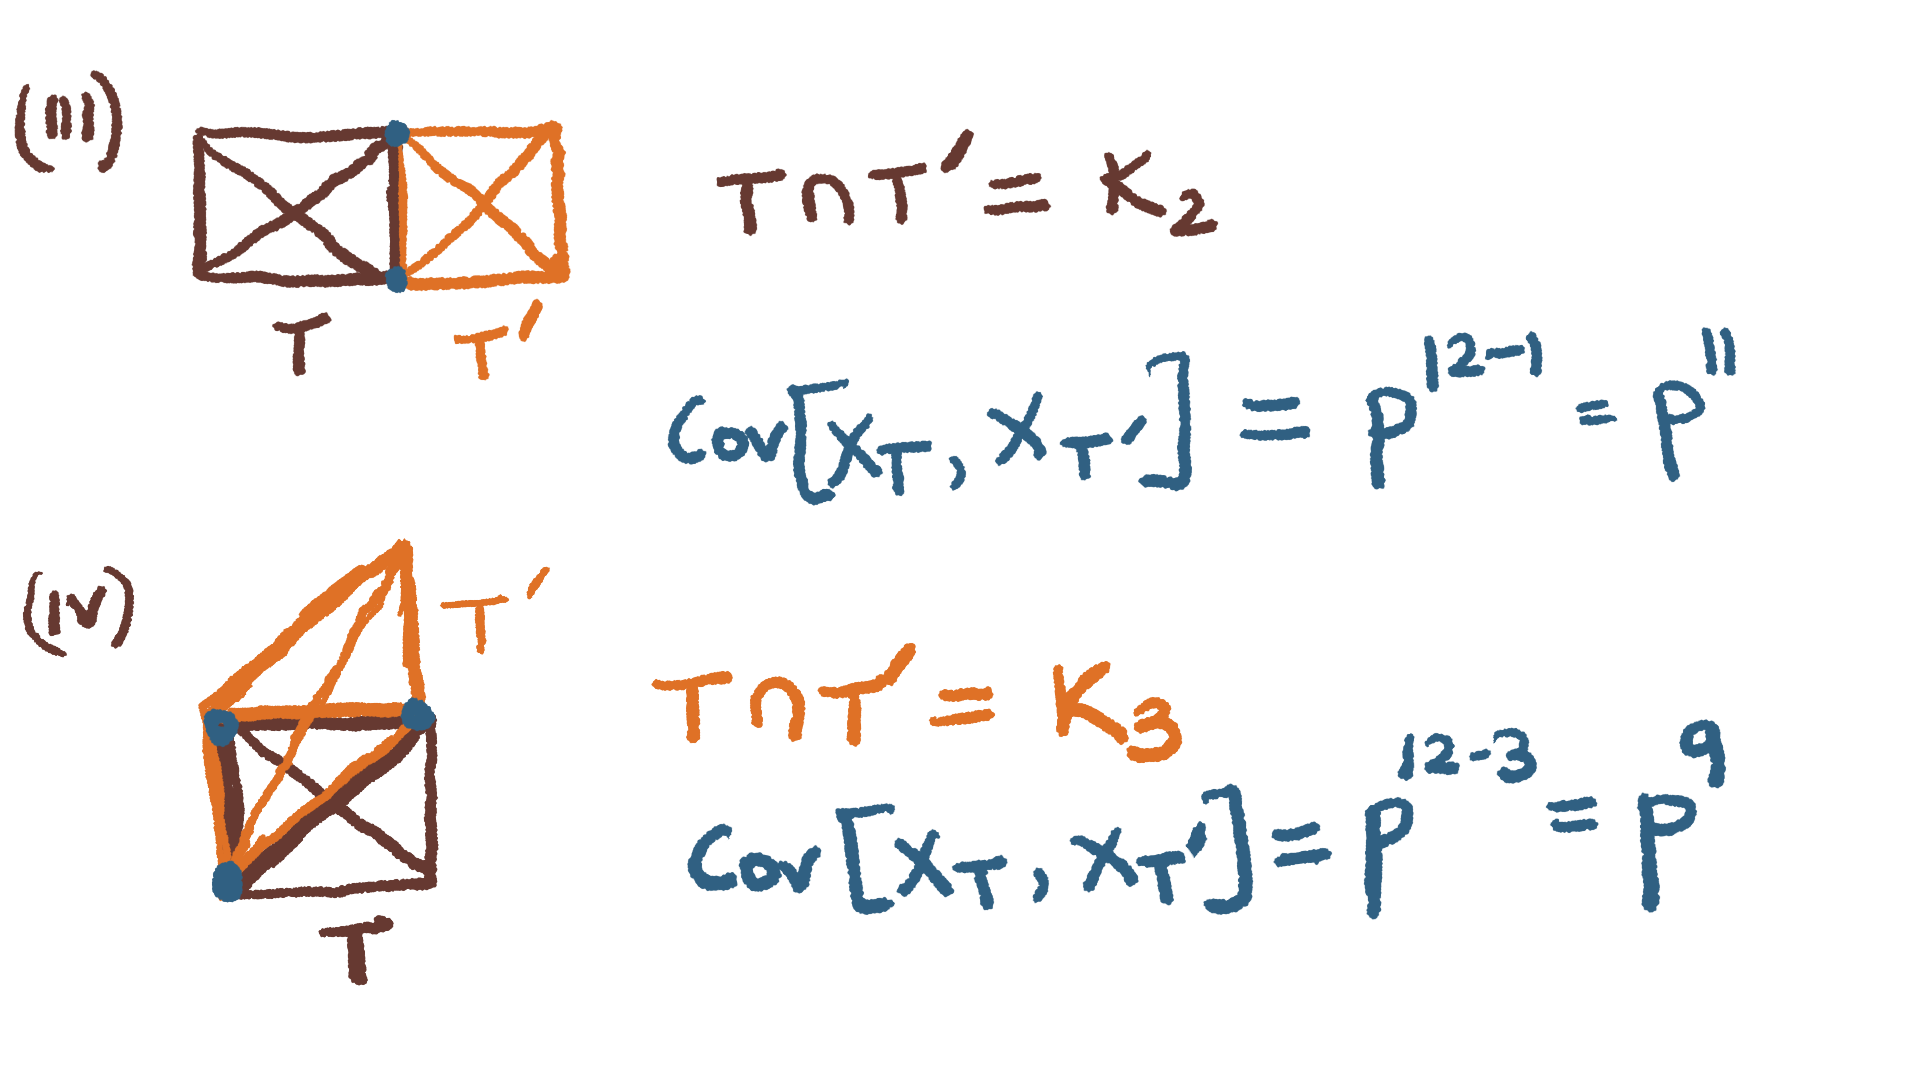 (iii)
T∩T′ = K₂
T T′
Cov[X_T, X_T′] = p^{12-1} = p^{11}
(iv)
T′
T∩T′ = K₃
Cov[X_T, X_T′] = p^{12-3} = p^9
T